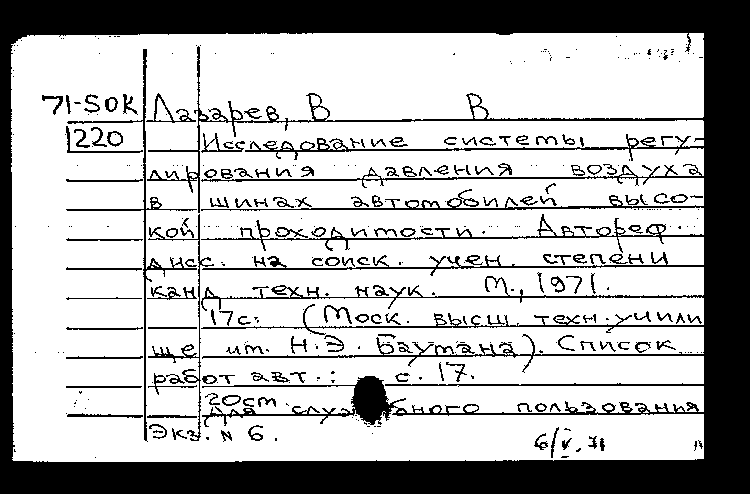 71-50К Лазарев, В В
1220 Исследование системы регу-
лирования давления воздуха
в шинах автомобилей высо-
кой проходимости. Автореф.
дисс. на соиск. учен. степени
канд. техн. наук. М., 1971.
17с. (Моск. высш. техн. учили
ще им. Н.Э. Баумана). Список
работ авт.: с. 17.
20см.
Для служебного пользования
Экз. № 6.
6/V.71